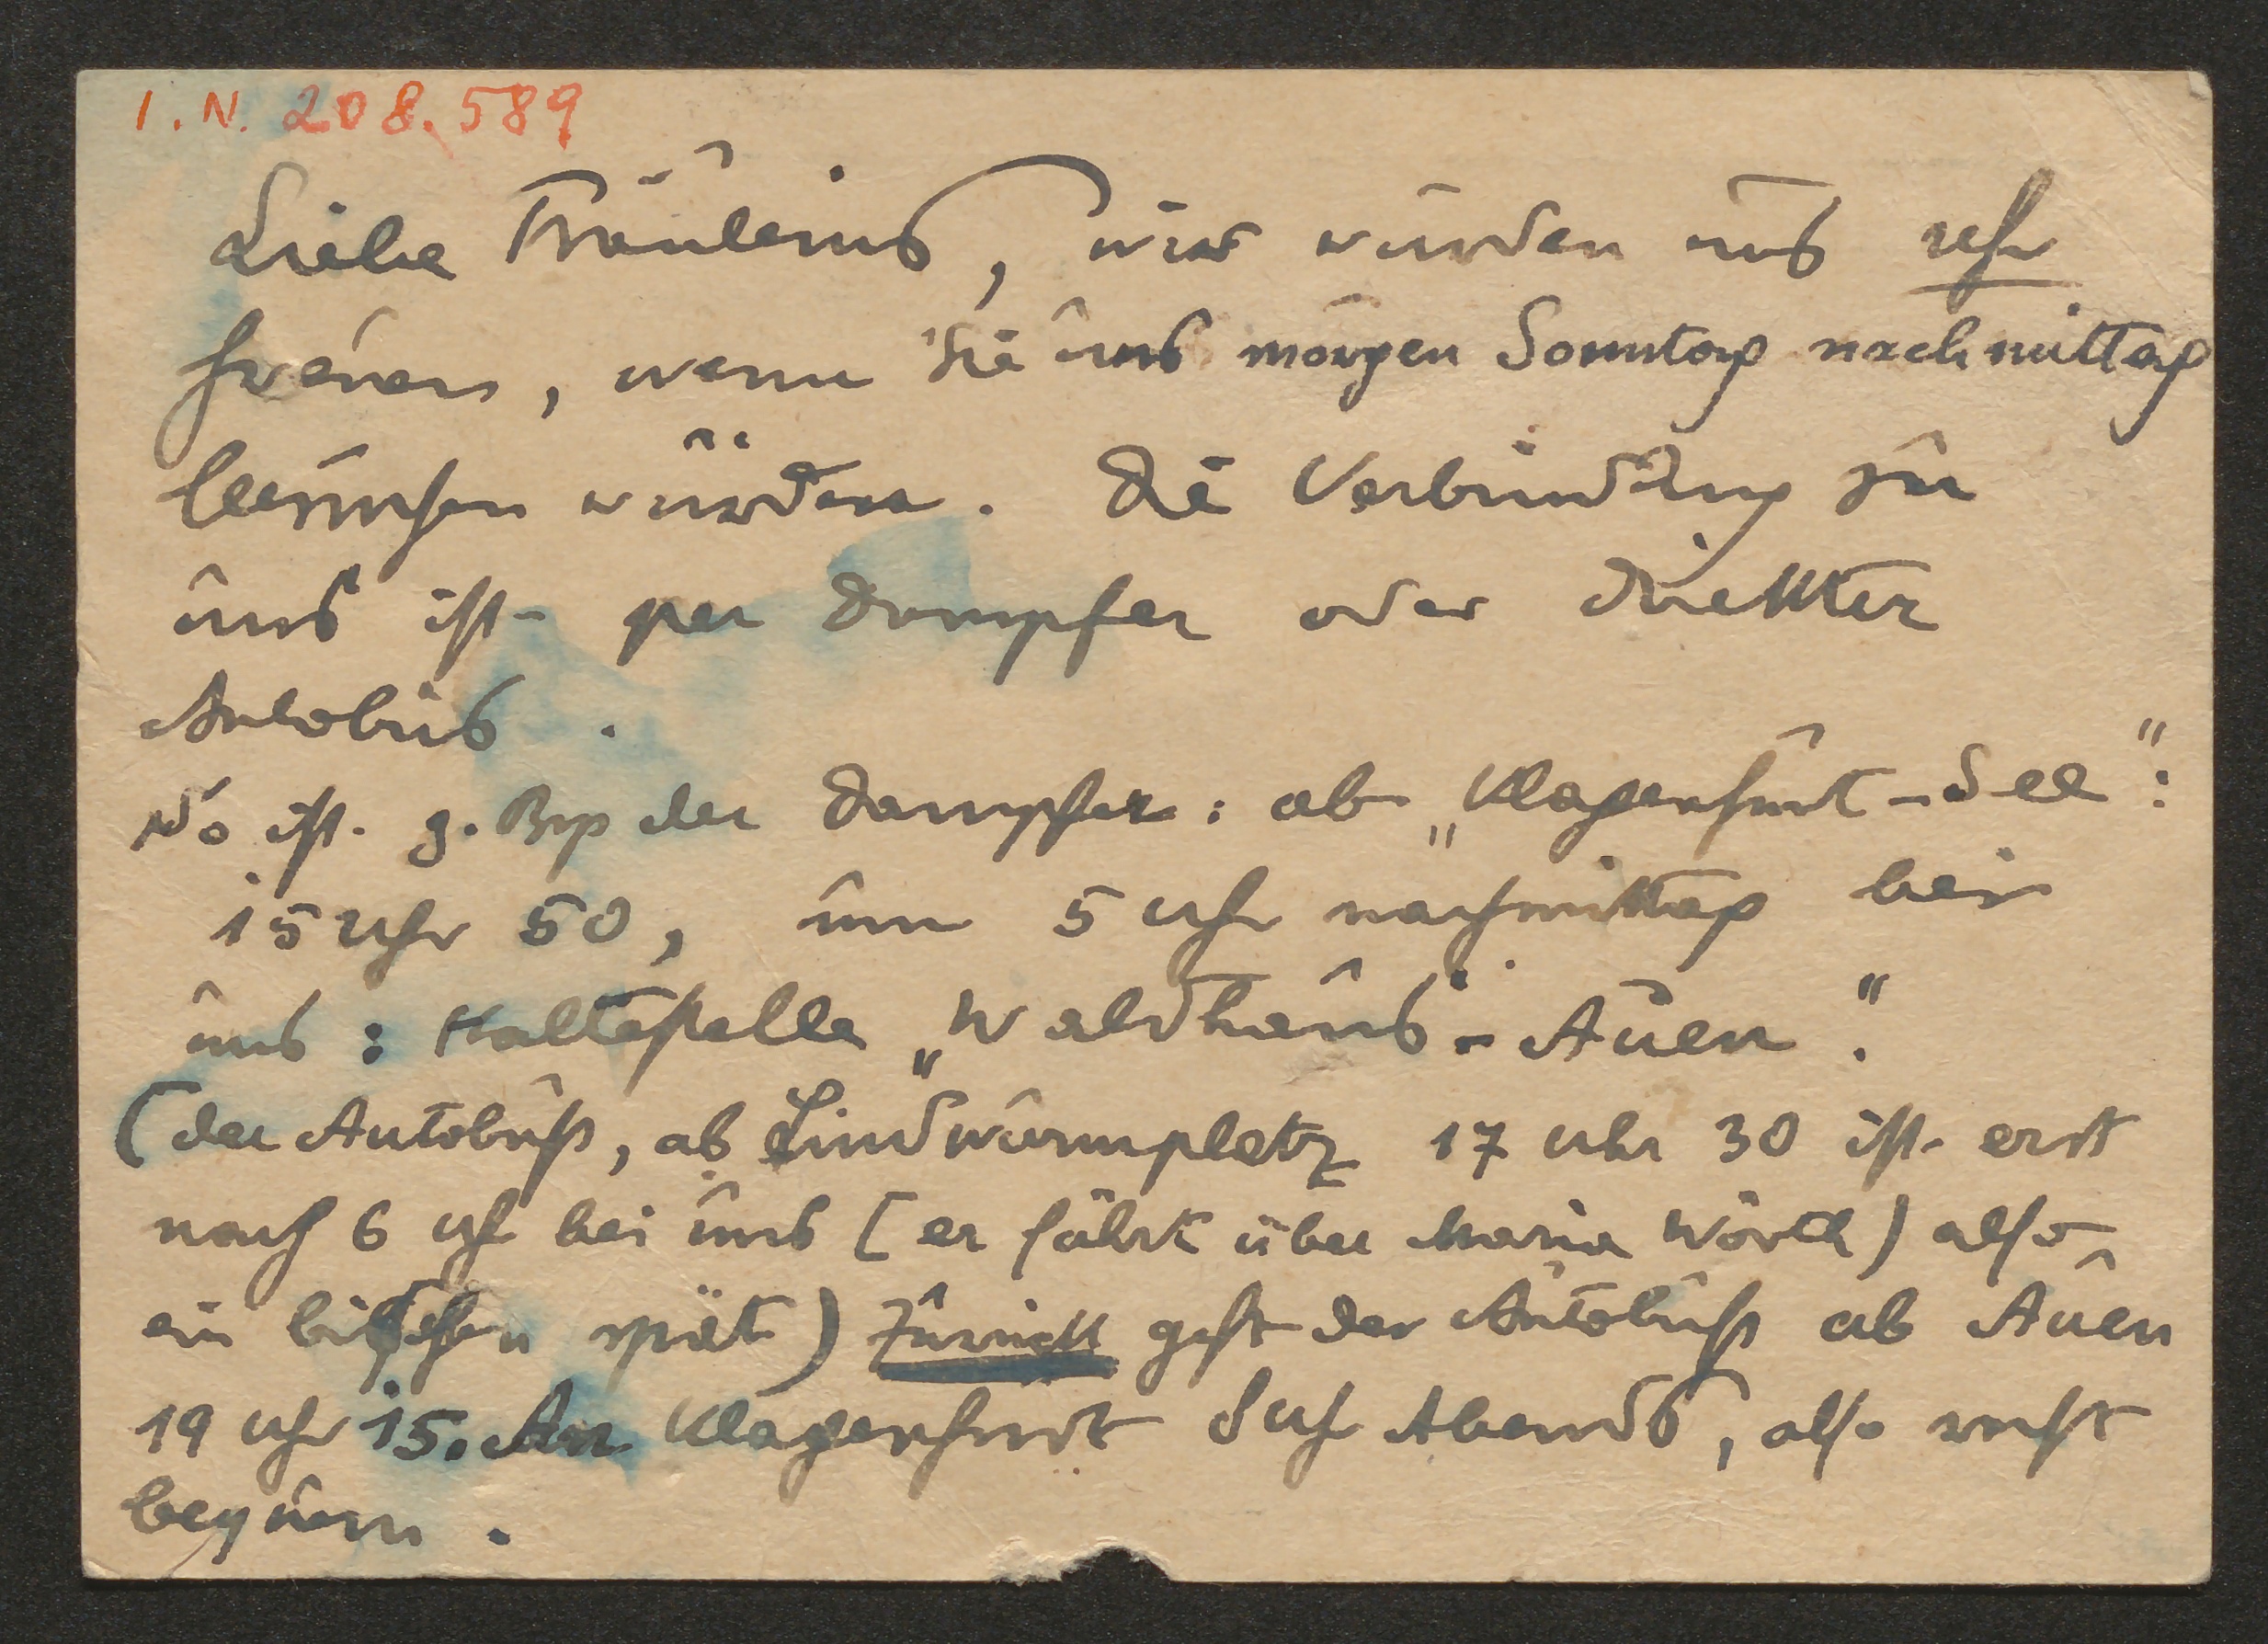 I. N. 208.589
Liebe Fräuleins, wir würden uns sehr
freuen, wenn Sie uns morgen Sonntag nachmittag
besuchen würden. Die Verbindung zu
uns ist per Dampfer oder direkter
Autobus.
So ist z. Bsp der Dampfer: ab „Klagenfurt-See":
15 Uhr 50, um 5 Uhr nachmittag bei
uns: Haltestelle „Waldhaus-Auen".
(der Autobuss, ab Lindwurmplatz 17 Uhr 30 ist erst
nach 6 Uh bei uns (er fährt über Maria Wörth) also
ein bisschen spät) Zurück geht der Autobuss ab Auen
19 Uhr 15. An Klagenfurt 8 Uh Abends, also recht
bequem.